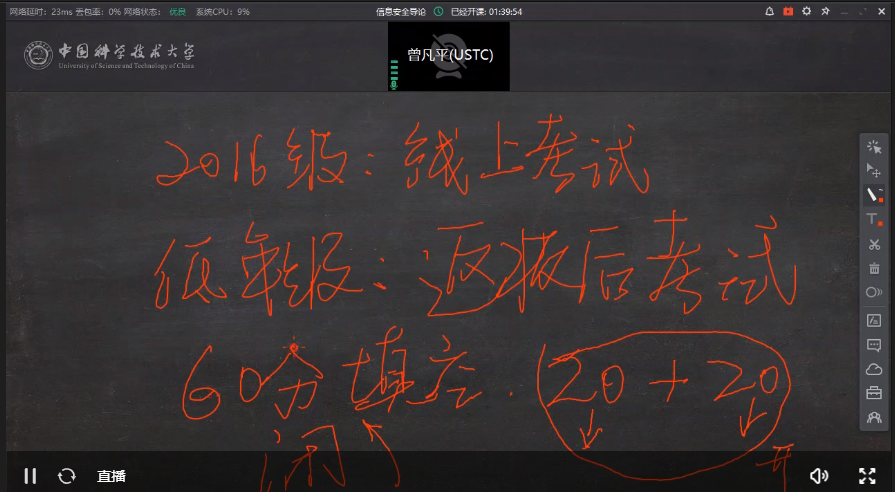 网络延时：23ms 丢包率：0% 网络状态： 优良 系统CPU：9%
信息安全导论 已经开课: 01:39:54
中国科学技术大学
University of Science and Technology of China
曾凡平(USTC)
2016级：线上考试
低年级：返校后考试
60分填空. 20+20
闭 开
直播